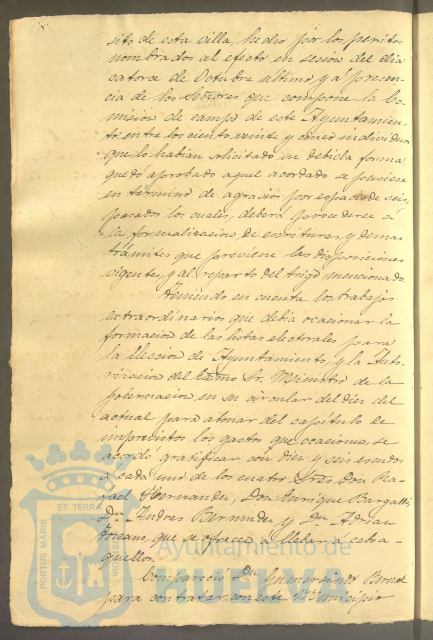 sito de esta villa, hecho por los peritos
nombrados al efecto en sesion del dia
catorce de Octubre ultimo, y a presen-
cia de los Señores que compone la Co-
mision de campo de este Ayuntamien-
to entre los ciento veinte y cinco individuos
que lo habian solicitado en debida forma
quedó aprobado aquel acordado se pusiese
en termino de agravios por espacio de seis
pasados los cuales, deberá procederse á
la formalizacion de escrituras y demas
trámites que previene las disposiciones
vigentes, y al reparto del trigo mencionado.
Teniendo en cuenta los trabajos
extraordinarios que debia ocacionar la
formacion de las listas electorales para
la lleccion de Ayuntamiento, y la Auto-
rizacion del Sr. Ministro de la
Gobernacion en su circular del diez del
actual para abonar del capítulo de
imprevistos los gastos que ocasiona, se
acordó gratificar con diez y seis escudos
a cada uno de los cuatro Sres. Don Ra-
fael Hernandez, Don Enrique Bargalló,
Dn. Andres Bermudez y Dn. Adrian
que se ofrece a llebar a cabo a-
quellos.
Compareció Dn. Gumersindo
para contratar con este Municipio
PORTUS MARIS
ET TERRAE
Ayuntamiento de
HUELVA